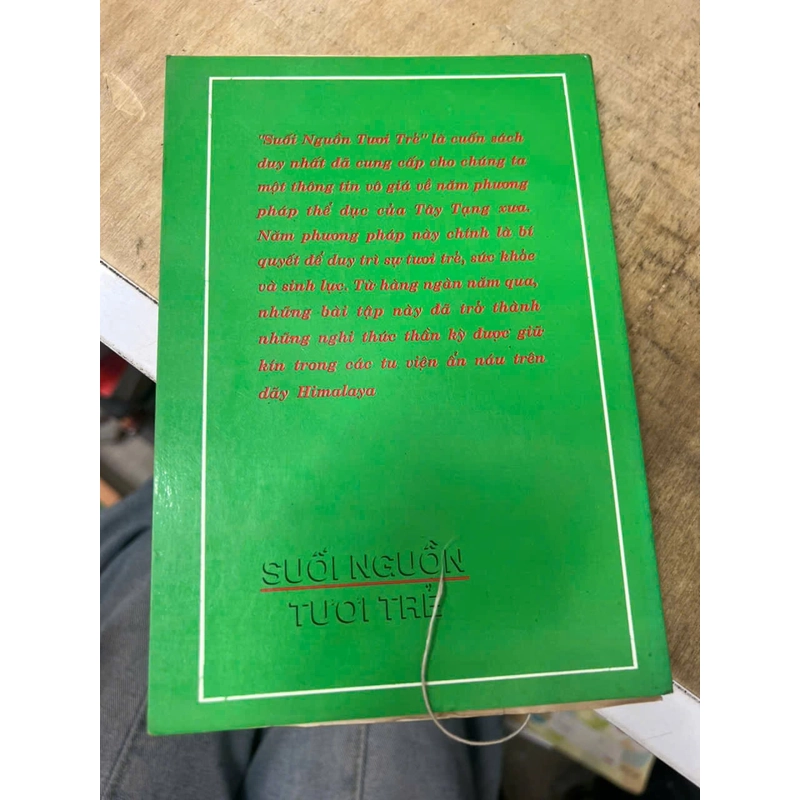 "Suối Nguồn Tươi Trẻ" là cuốn sách
duy nhất đã cung cấp cho chúng ta
một thông tin vô giá về năm phương
pháp thể dục của Tây Tạng xưa.
Năm phương pháp này chính là bí
quyết để duy trì sự tươi trẻ, sức khỏe
và sinh lực. Từ hàng ngàn năm qua,
những bài tập này đã trở thành
những nghi thức thần kỳ được giữ
kín trong các tu viện ẩn náu trên
dãy Himalaya
SUỐI NGUỒN
TƯƠI TRẺ